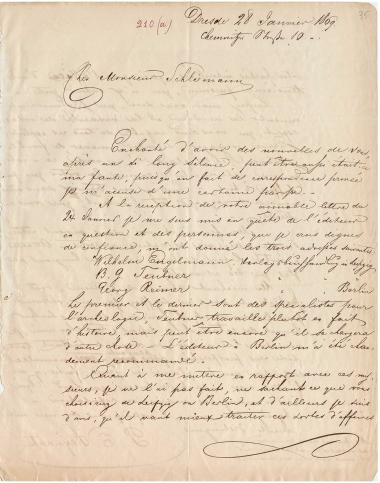 210 (a)
Dresde 28 Janvier 1869
Chemnitzer Straße 10
Cher Monsieur Schliemann
Enchanté d'avoir des nouvelles de vous
après un si long silence, peut être aussi était-ce
ma faute, puisqu'en fait de correspondance privée
je m'accuse d'une certaine paresse.
A la réception de votre aimable lettre du
24 Janvier je me suis mis en quête de l'éditeur
en question et des personnes, que je crois dignes
de confiance, m'ont donné les trois adresses suivantes
Wilhelm Engelmann, Verlagsbuchhandlung in Leipzig
B. G. Teubner
Georg Reimer Berlin
Le premier et le dernier sont des spécialistes pour
l'archéologie, Teubner travaille plutôt en fait
d'histoire, mais peut être encore qu'il se chargera
d'autre chose. L'éditeur à Berlin m'a été chau-
dement recommandé.
Quant à me mettre en rapport avec ces mes-
sieurs, je ne l'ai pas fait, ne sachant ce que vous
choisirez de Leipzig ou Berlin, et d'ailleurs je suis
d'avis, qu'il vaut mieux traiter ces sortes d'affaires